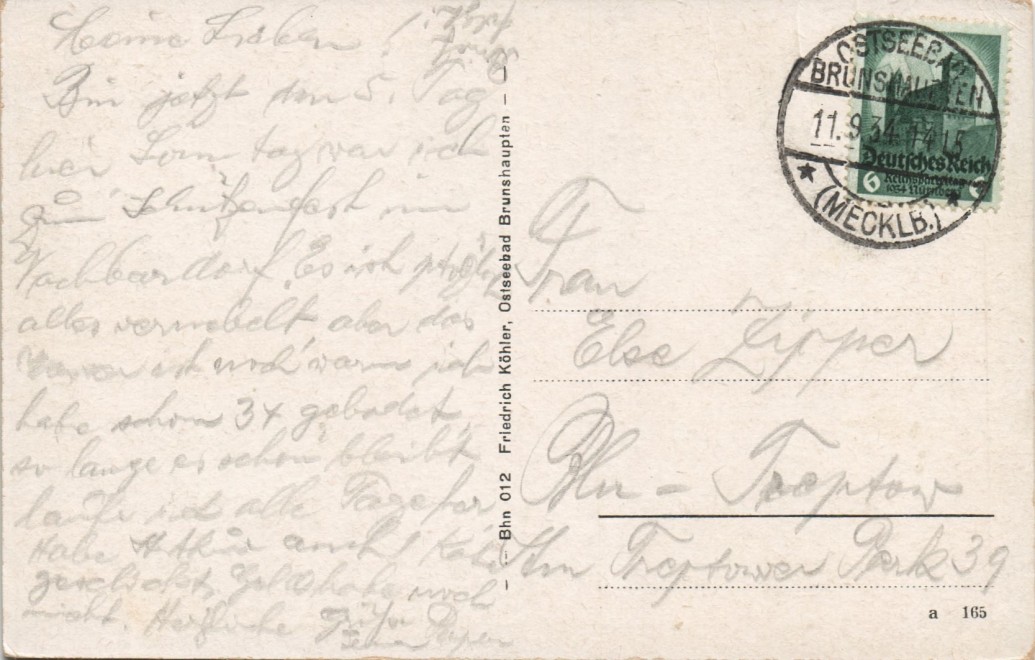 Meine Lieben!
Bin jetzt den 5. Tag
hier Sonntag war ich
zum Schützenfest im
Nachbardorf. Es ist jetzt
alles vernebelt aber das
Wasser ist noch warm ich
habe schon 3x gebadet,
so lange es schön bleibt
laufe ich alle Tage
Habe Arthur auch 1 Karte
geschickt, habe noch
nicht. Herzliche Grüße
OSTSEEBAD
BRUNSHAUPTEN
11.9.34.
(MECKLB.)
Deutsches Reich
6 Reichsparteitag 6
1934 Nürnberg
Bhn 012 Friedrich Köhler, Ostseebad Brunshaupten
Frau
Else Zipper
Bln - Treptow
Am Treptower Park 39
a 165